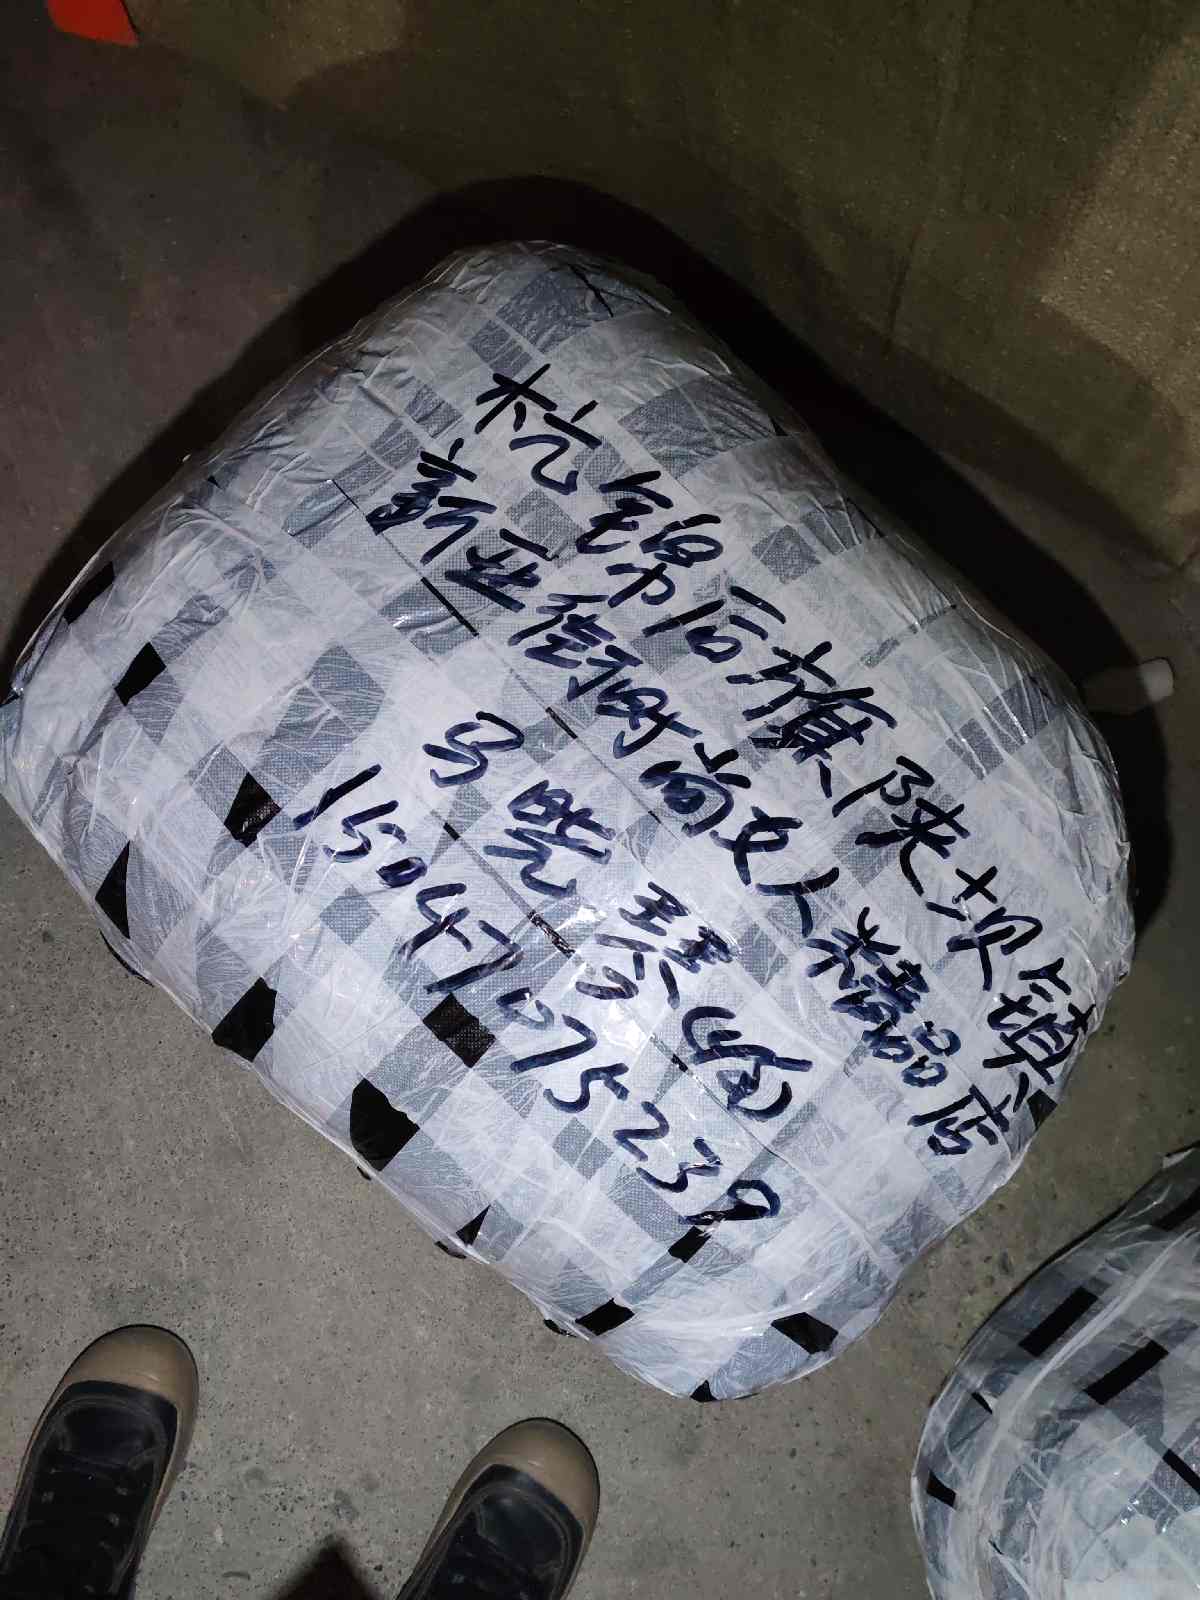 杭锦后旗陕坝镇
新亚街时尚女人精品店
马晓琴(收)
15047075239